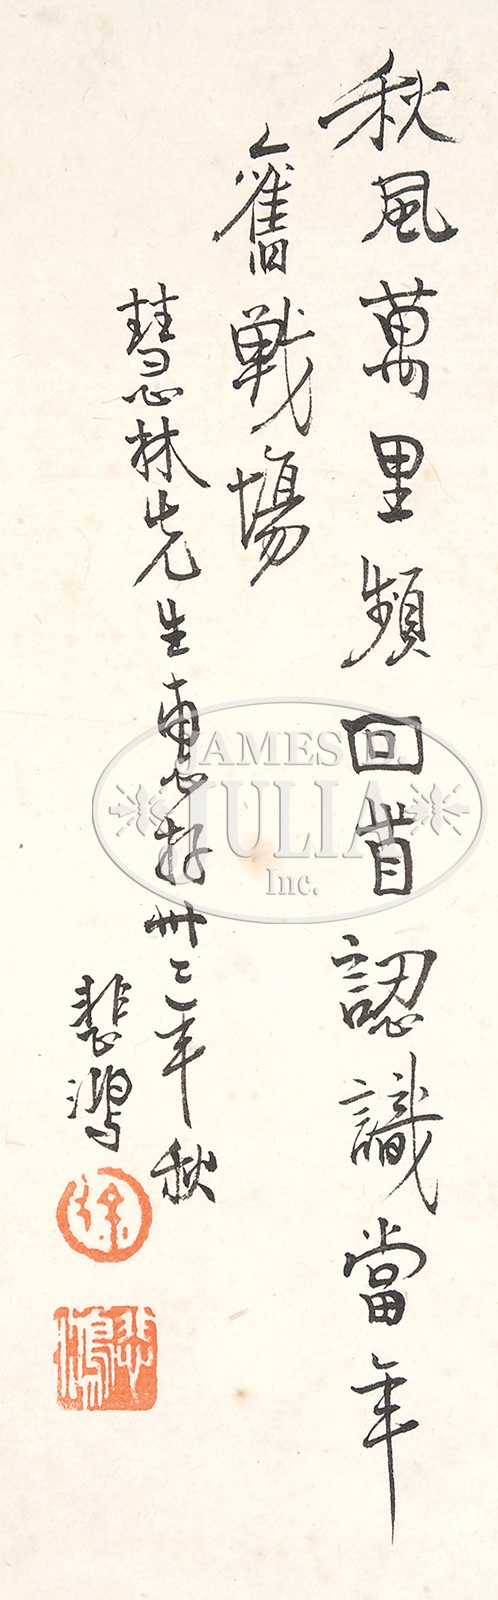 秋風萬里頻回首認識當年
舊戰場
慧林先生惠存卅三年秋
悲鴻
徐
悲鴻
JAMES D.
JULIA
Inc.